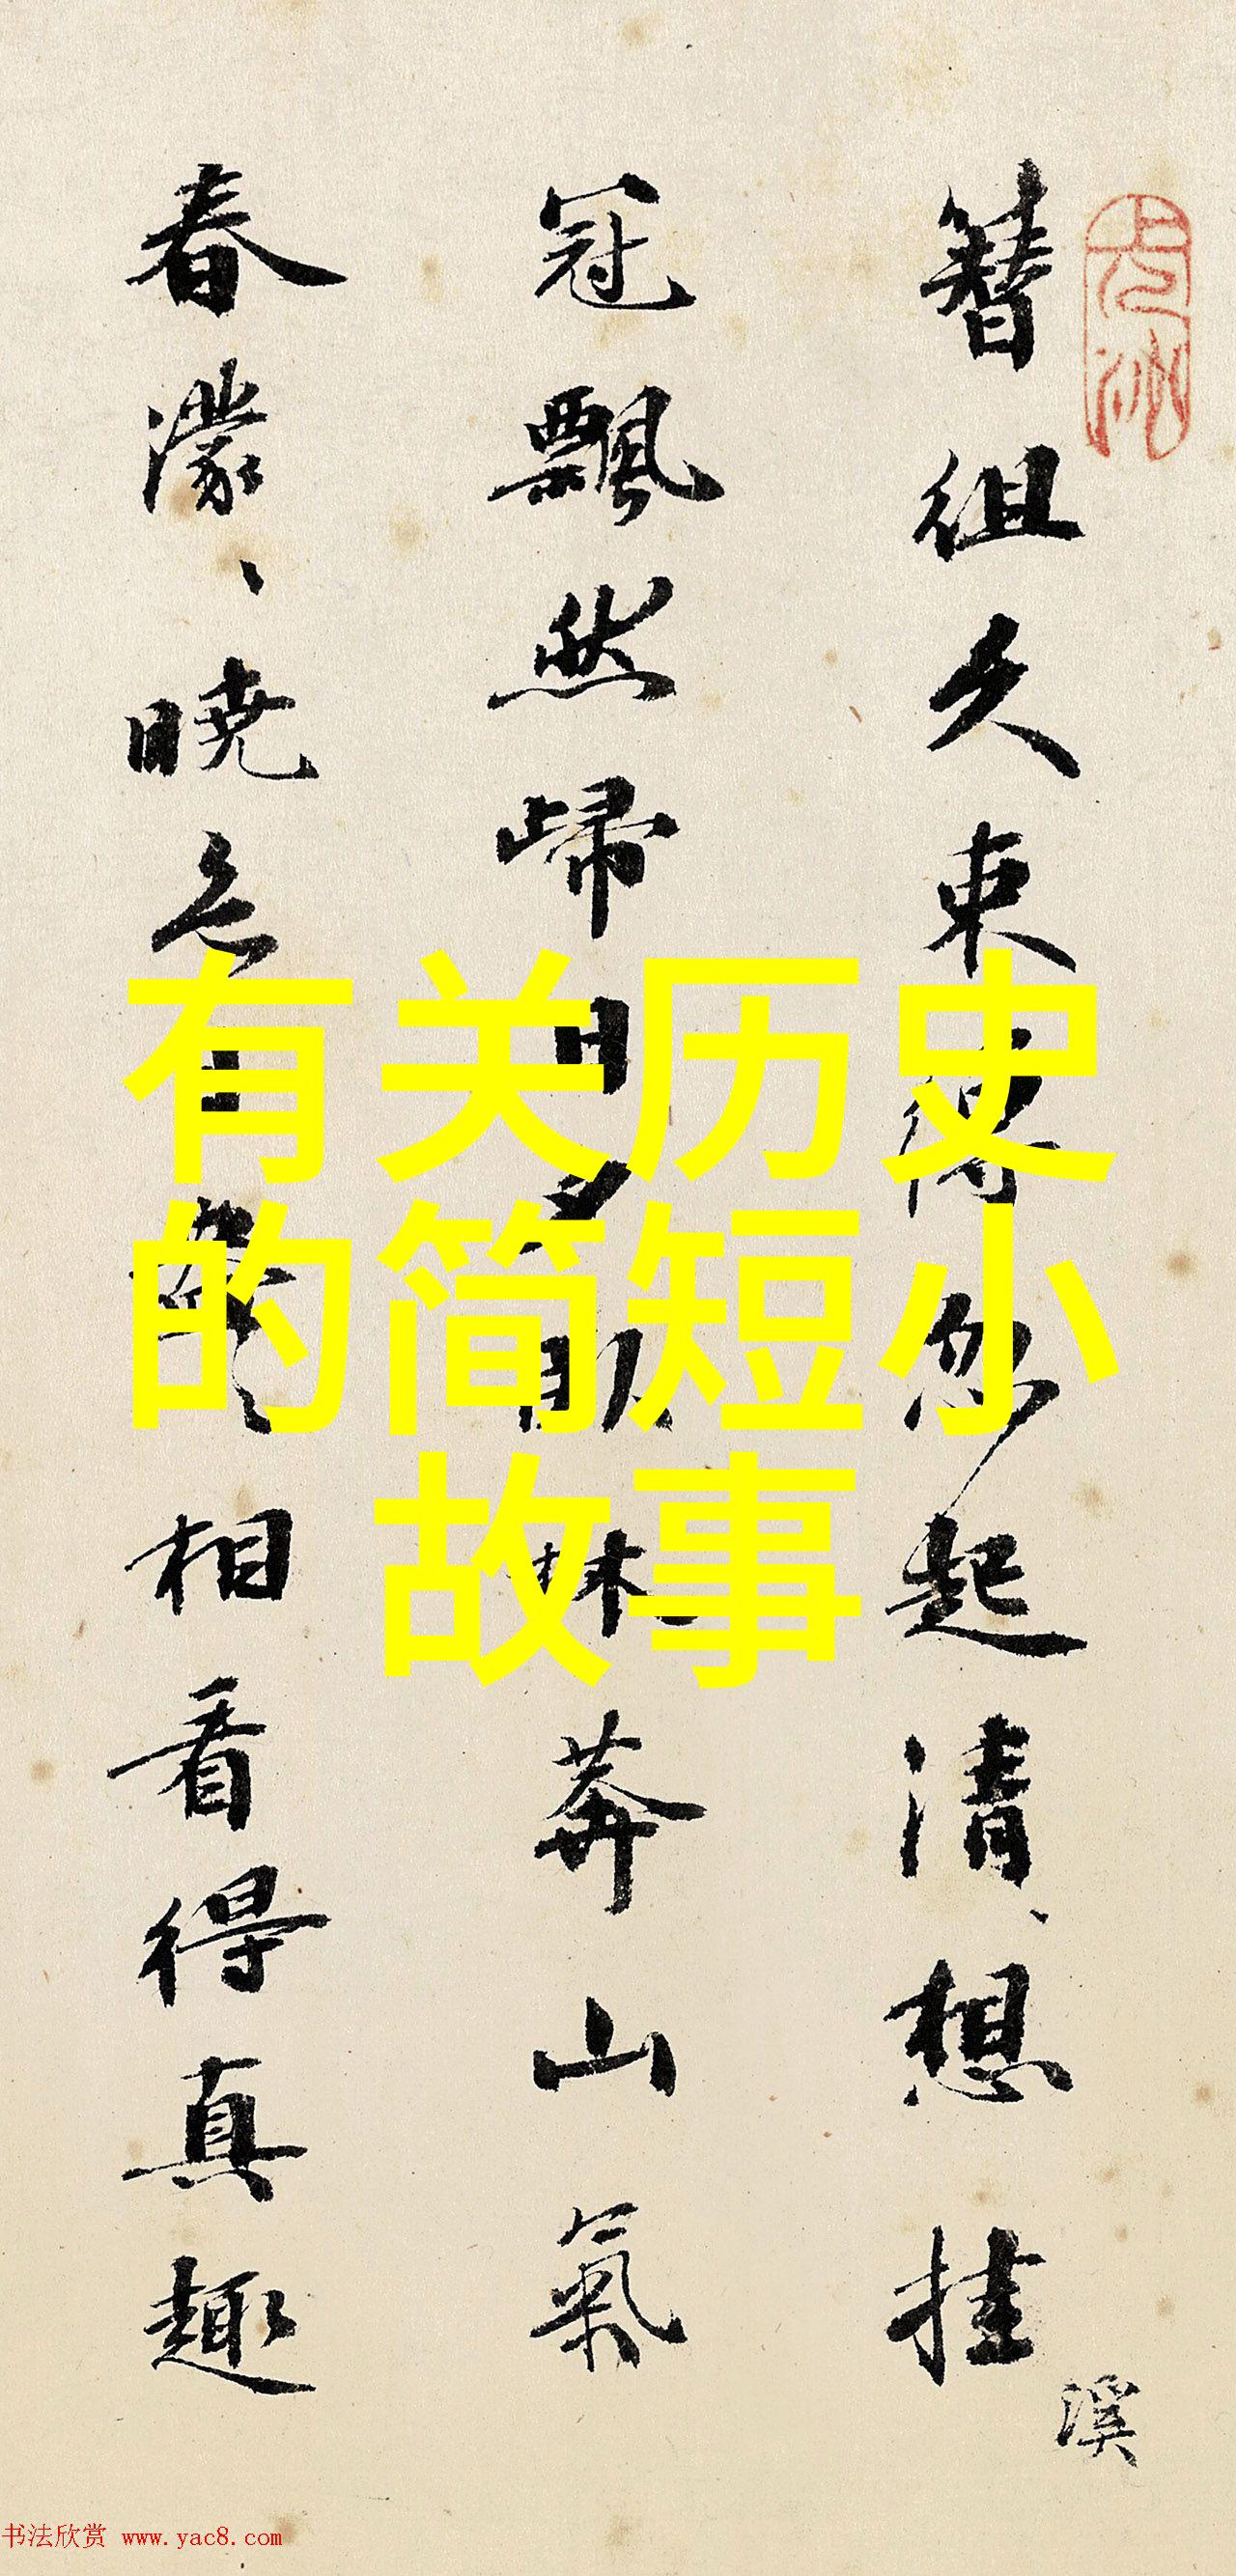 有关历史
的简短小
故事
簪組久束忽起清想挂
冠飄然歸日夕林莽山氣
春濛、曉色相看得真趣
溪
书法欣赏 www.yac8.com